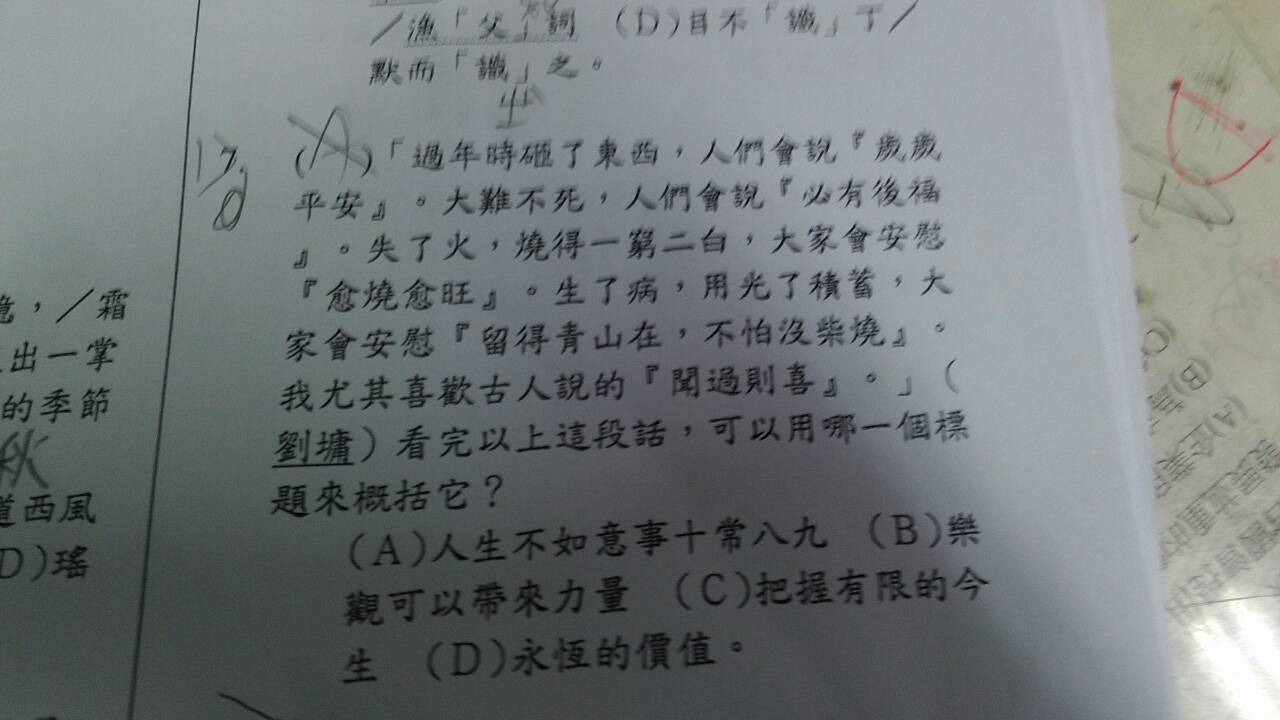 ／漁「父」詞　(D)目不「識」丁／
默而「識」之。
(A)「過年時砸了東西，人們會說『歲歲
平安』。大難不死，人們會說『必有後福
』。失了火，燒得一窮二白，大家會安慰
『愈燒愈旺』。生了病，用光了積蓄，大
家會安慰『留得青山在，不怕沒柴燒』。
我尤其喜歡古人說的『聞過則喜』。」（
劉墉）看完以上這段話，可以用哪一個標
題來概括它？
(A)人生不如意事十常八九　(B)樂
觀可以帶來力量　(C)把握有限的今
生　(D)永恆的價值。
，／霜
出一掌
的季節
秋
道西風
D)瑤